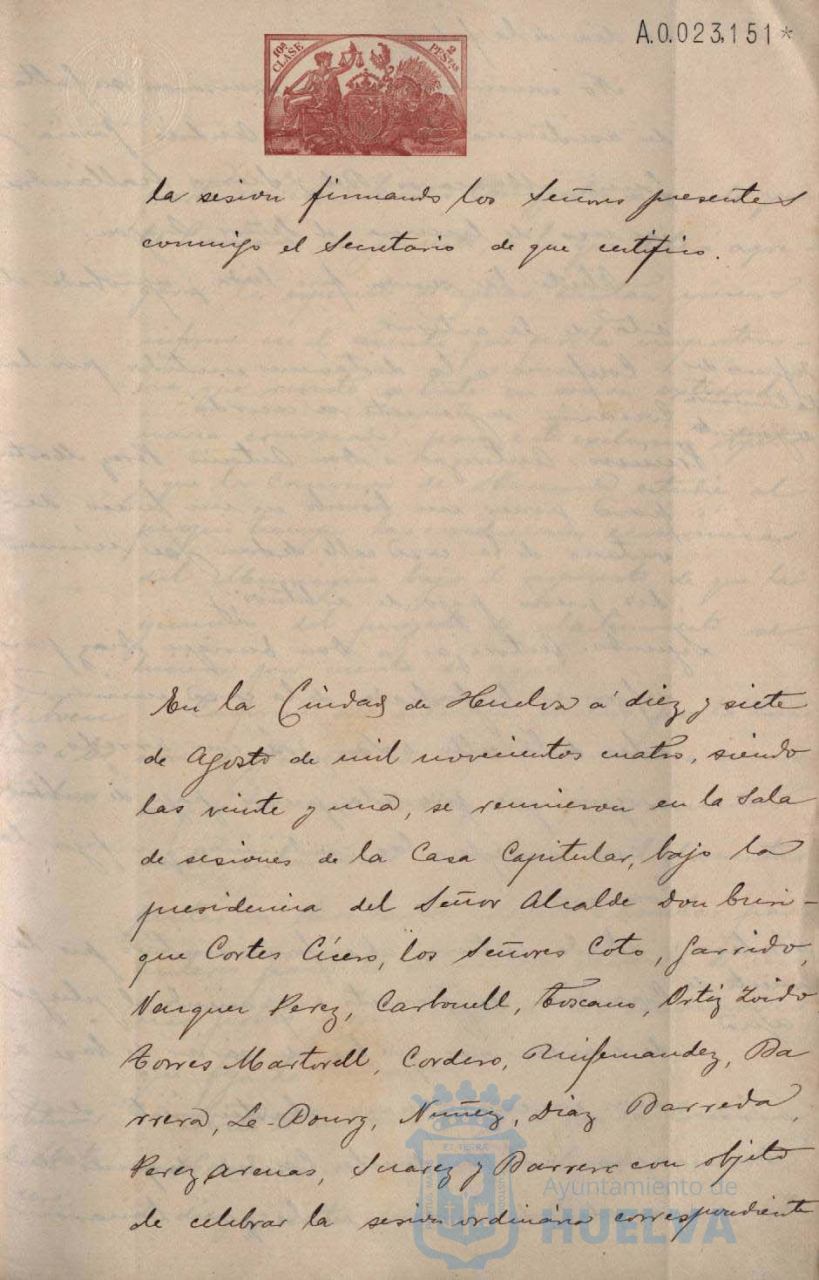 A.0.023,151*
10ª CLASE
2 PESTAS
la sesion firmando los Señores presentes
conmigo el Secretario de que certifico.
En la Ciudad de Huelva á diez y siete
de Agosto de mil novecientos cuatro, siendo
las veinte y una, se reunieron en la Sala
de sesiones de la Casa Capitular, bajo la
presidencia del Señor Alcalde Don Enri-
que Cortes Cícero, los Señores Coto, Garrido,
Vazquez Perez, Carbonell, Toscano, Ortiz Zoido
Torres Martorell, Cordero, Ruifernandez, Ba
rrera, Le-Bourg, Nuñez, Diaz Barreda,
Perez Arenas, Suarez y Barrero con objeto
de celebrar la sesion ordinaria correspondiente
Ayuntamiento de
HUELVA